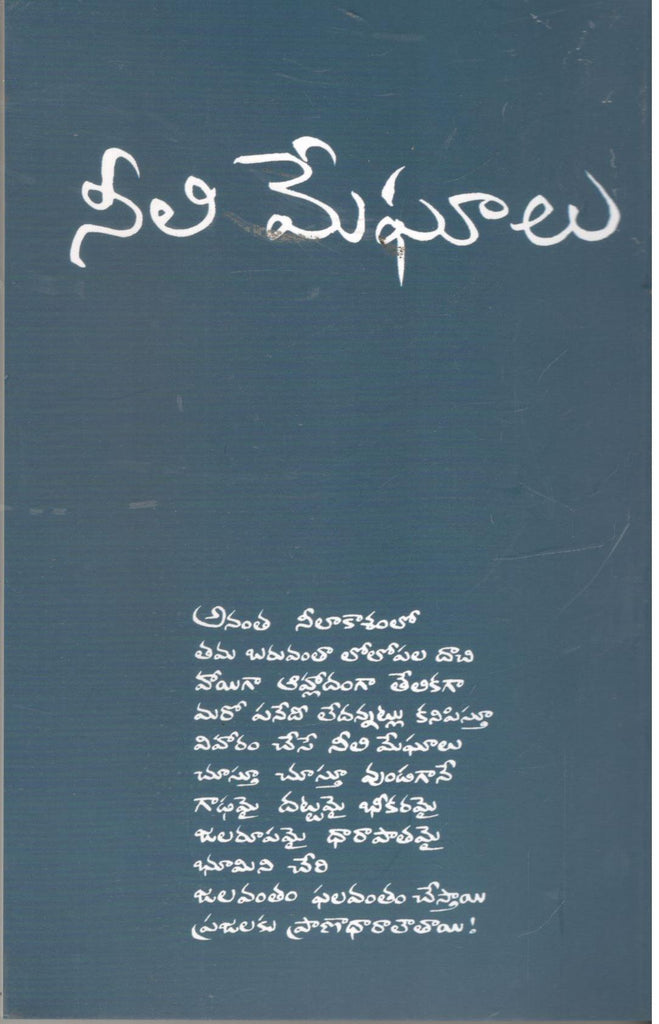 నీలి మేఘాలు
అనంత నీలాకాశంలో
తమ బరువంతా లోలోపల దాచి
హాయిగా ఆహ్లాదంగా తేలికగా
మరో పనేదీ లేదన్నట్లు కనిపిస్తూ
విహారం చేసే నీలి మేఘాలు
చూస్తూ చూస్తూ వుండగానే
గాఢమై దట్టమై భీకరమై
జలరూపమై ధారాపాతమై
భూమిని చేరి
జలవంతం ఫలవంతం చేస్తాయి
ప్రజలకు ప్రాణాధారాలౌతాయి!